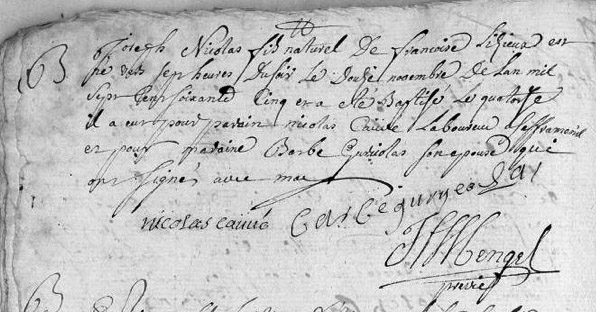 63 Joseph Nicolas fils naturel De francoise Lizieux est
né vers sept heures Du soir Le Douze novembre De Lan mil
sept Cent soixante Cinq et a eté Baptisé Le quatorze
il a eut pour parain nicolas Laboureur
et pour maraine Barbe son epouse qui
ont signés avec moy
nicolas
JF Mengel